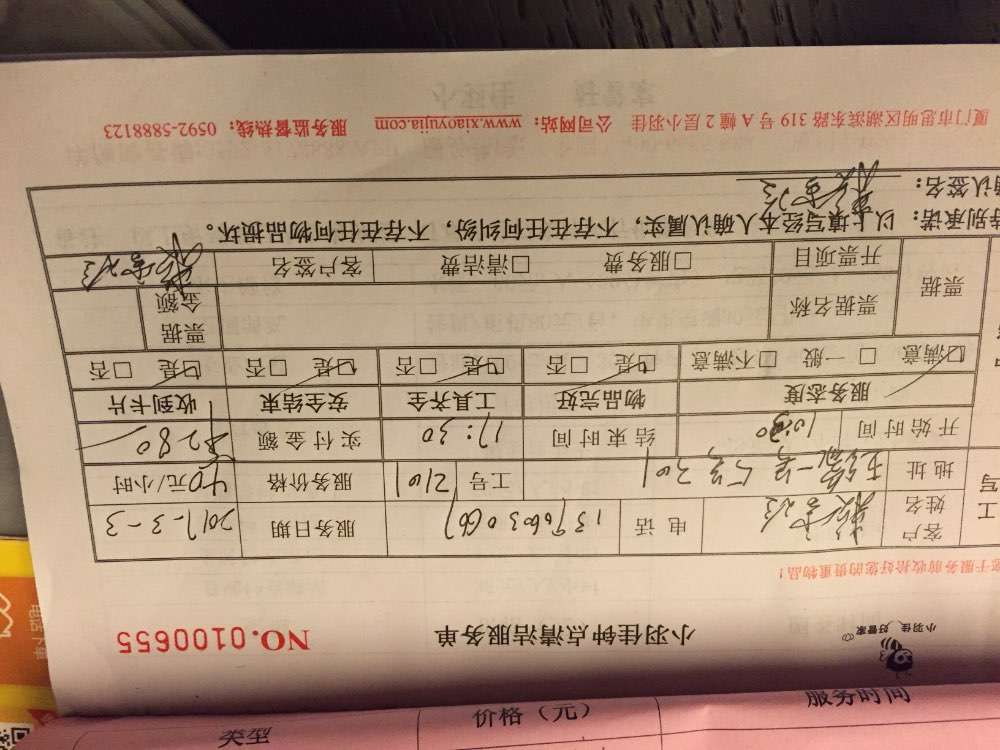 小羽佳，好管家
小羽佳钟点清洁服务单
NO.0100655
于服务前收拾好您的贵重物品！
客户姓名 电话 服务日期 2017-3-3
地址 工号 2101 服务价格 40元/小时
开始时间 10:30 结束时间 17:30 实付金额 ¥280
服务态度 物品完好 工具齐全 安全结束 收到卡片
☑满意 □一般 □不满意 ☑是 □否 ☑是 □否 ☑是 □否 ☑是 □否
票据 票据名称 票据金额
开票项目 □服务费 □清洁费 客户签名
特别承诺：以上填写经本人确认属实，不存在任何纠纷，不存在任何物品损坏。
确认签名：
厦门市思明区湖滨东路 319 号 A 幢 2 层小羽佳 公司网站：www.xiaoyujia.com 服务监督热线：0592-5888123
类型 价格（元） 服务时间